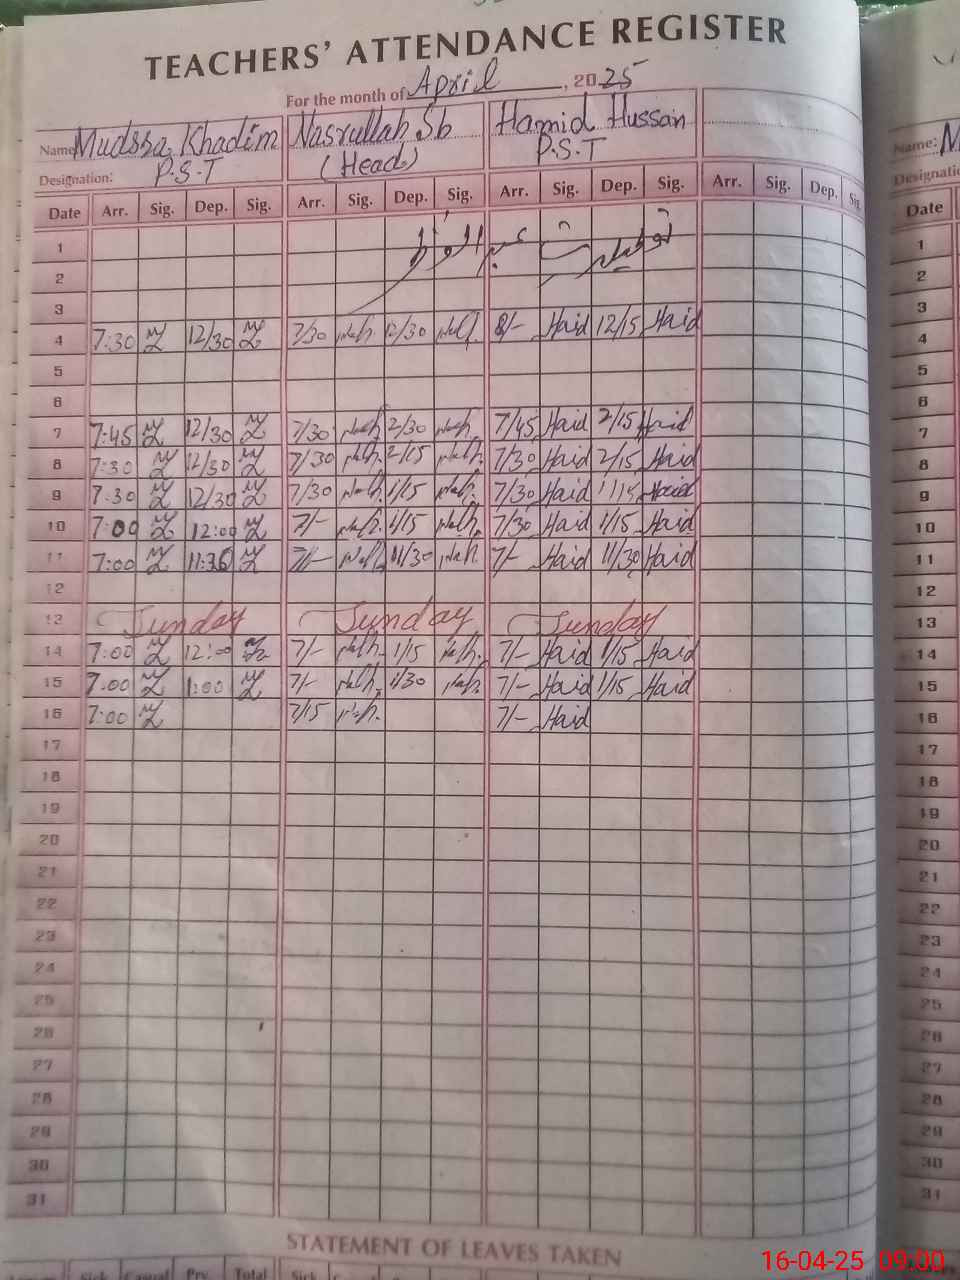 TEACHERS' ATTENDANCE REGISTER
For the month of April, 2025
Name: Mudssa Khadim Nasrullah Sb Hamid Hussain
Designation: P.S.T (Head) P.S.T
Date Arr. Sig. Dep. Sig. Arr. Sig. Dep. Sig. Arr. Sig. Dep. Sig. Arr. Sig. Dep. Sig.
1 تعطیلات عید الفطر
2
3
4 7:30 12/30 7/30 12/30 8/- Haid 12/15 Haid
5
6
7 7:45 12/30 7/30 2/30 7/45 Haid 2/15 Haid
8 7:30 12/30 7/30 2/15 7/30 Haid 2/15 Haid
9 7:30 12/30 7/30 1/15 7/30 Haid 1/15 Haid
10 7:00 12:00 7/- 1/15 7/30 Haid 1/15 Haid
11 7:00 11:30 7/- 11/30 7/- Haid 11/30 Haid
12
13 Sunday Sunday Sunday
14 7:00 12:00 7/- 1/15 7/- Haid 1/15 Haid
15 7:00 1:00 7/- 1/30 7/- Haid 1/15 Haid
16 7:00 7/15 7/- Haid
17
18
19
20
21
22
23
24
25
26
27
28
29
30
31
STATEMENT OF LEAVES TAKEN
Sick Casual Prv. Total Sick
Name:
Designatio
Date
1
2
3
4
5
6
7
8
9
10
11
12
13
14
15
16
17
18
19
20
21
22
23
24
25
26
27
28
29
30
31
16-04-25 09:00